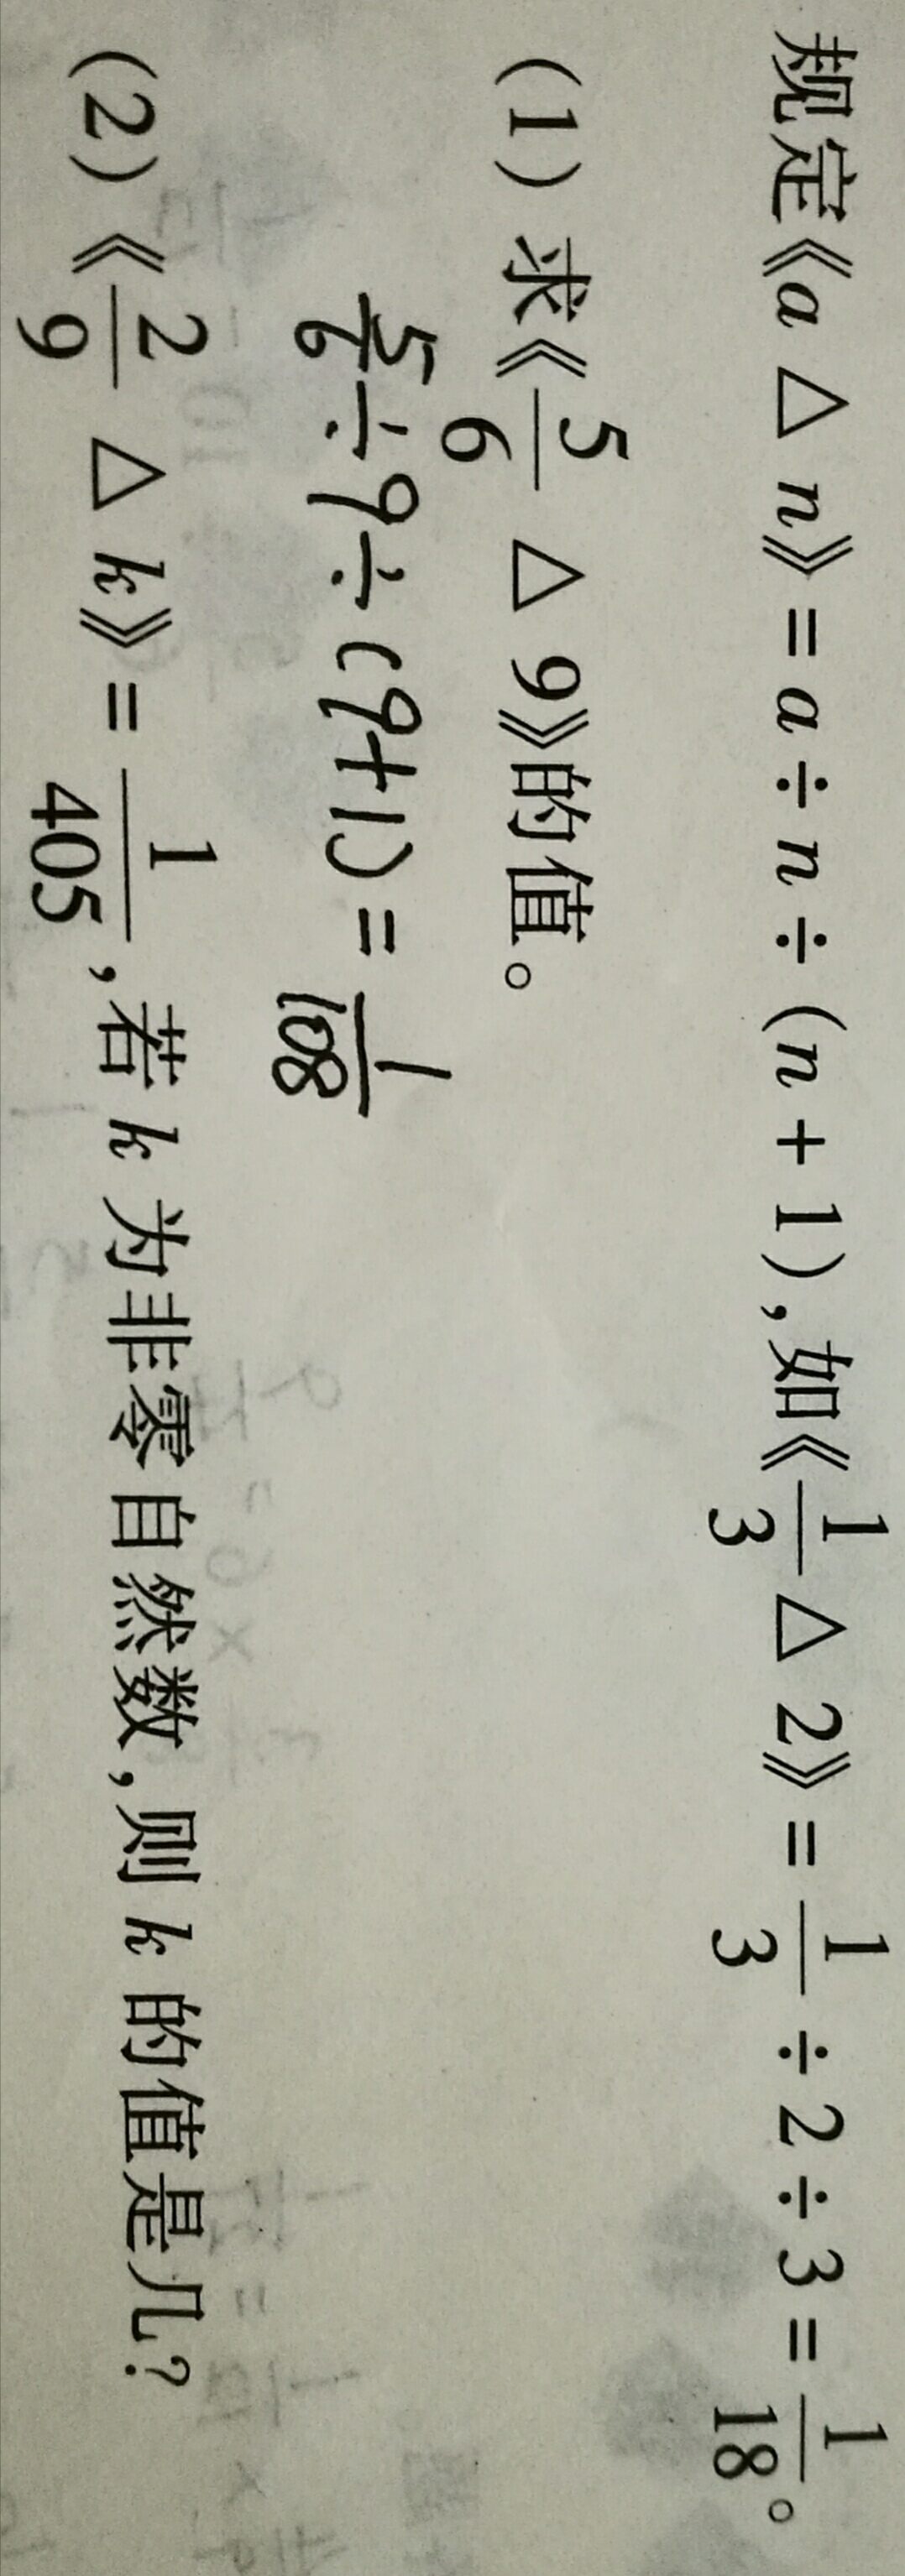 规定《a △ n》= a ÷ n ÷ (n + 1),如《1/3 △ 2》= 1/3 ÷ 2 ÷ 3 = 1/18。
(1) 求《5/6 △ 9》的值。
5/6 ÷ 9 ÷ (9+1) = 1/108
(2)《2/9 △ k》= 1/405,若 k 为非零自然数,则 k 的值是几?